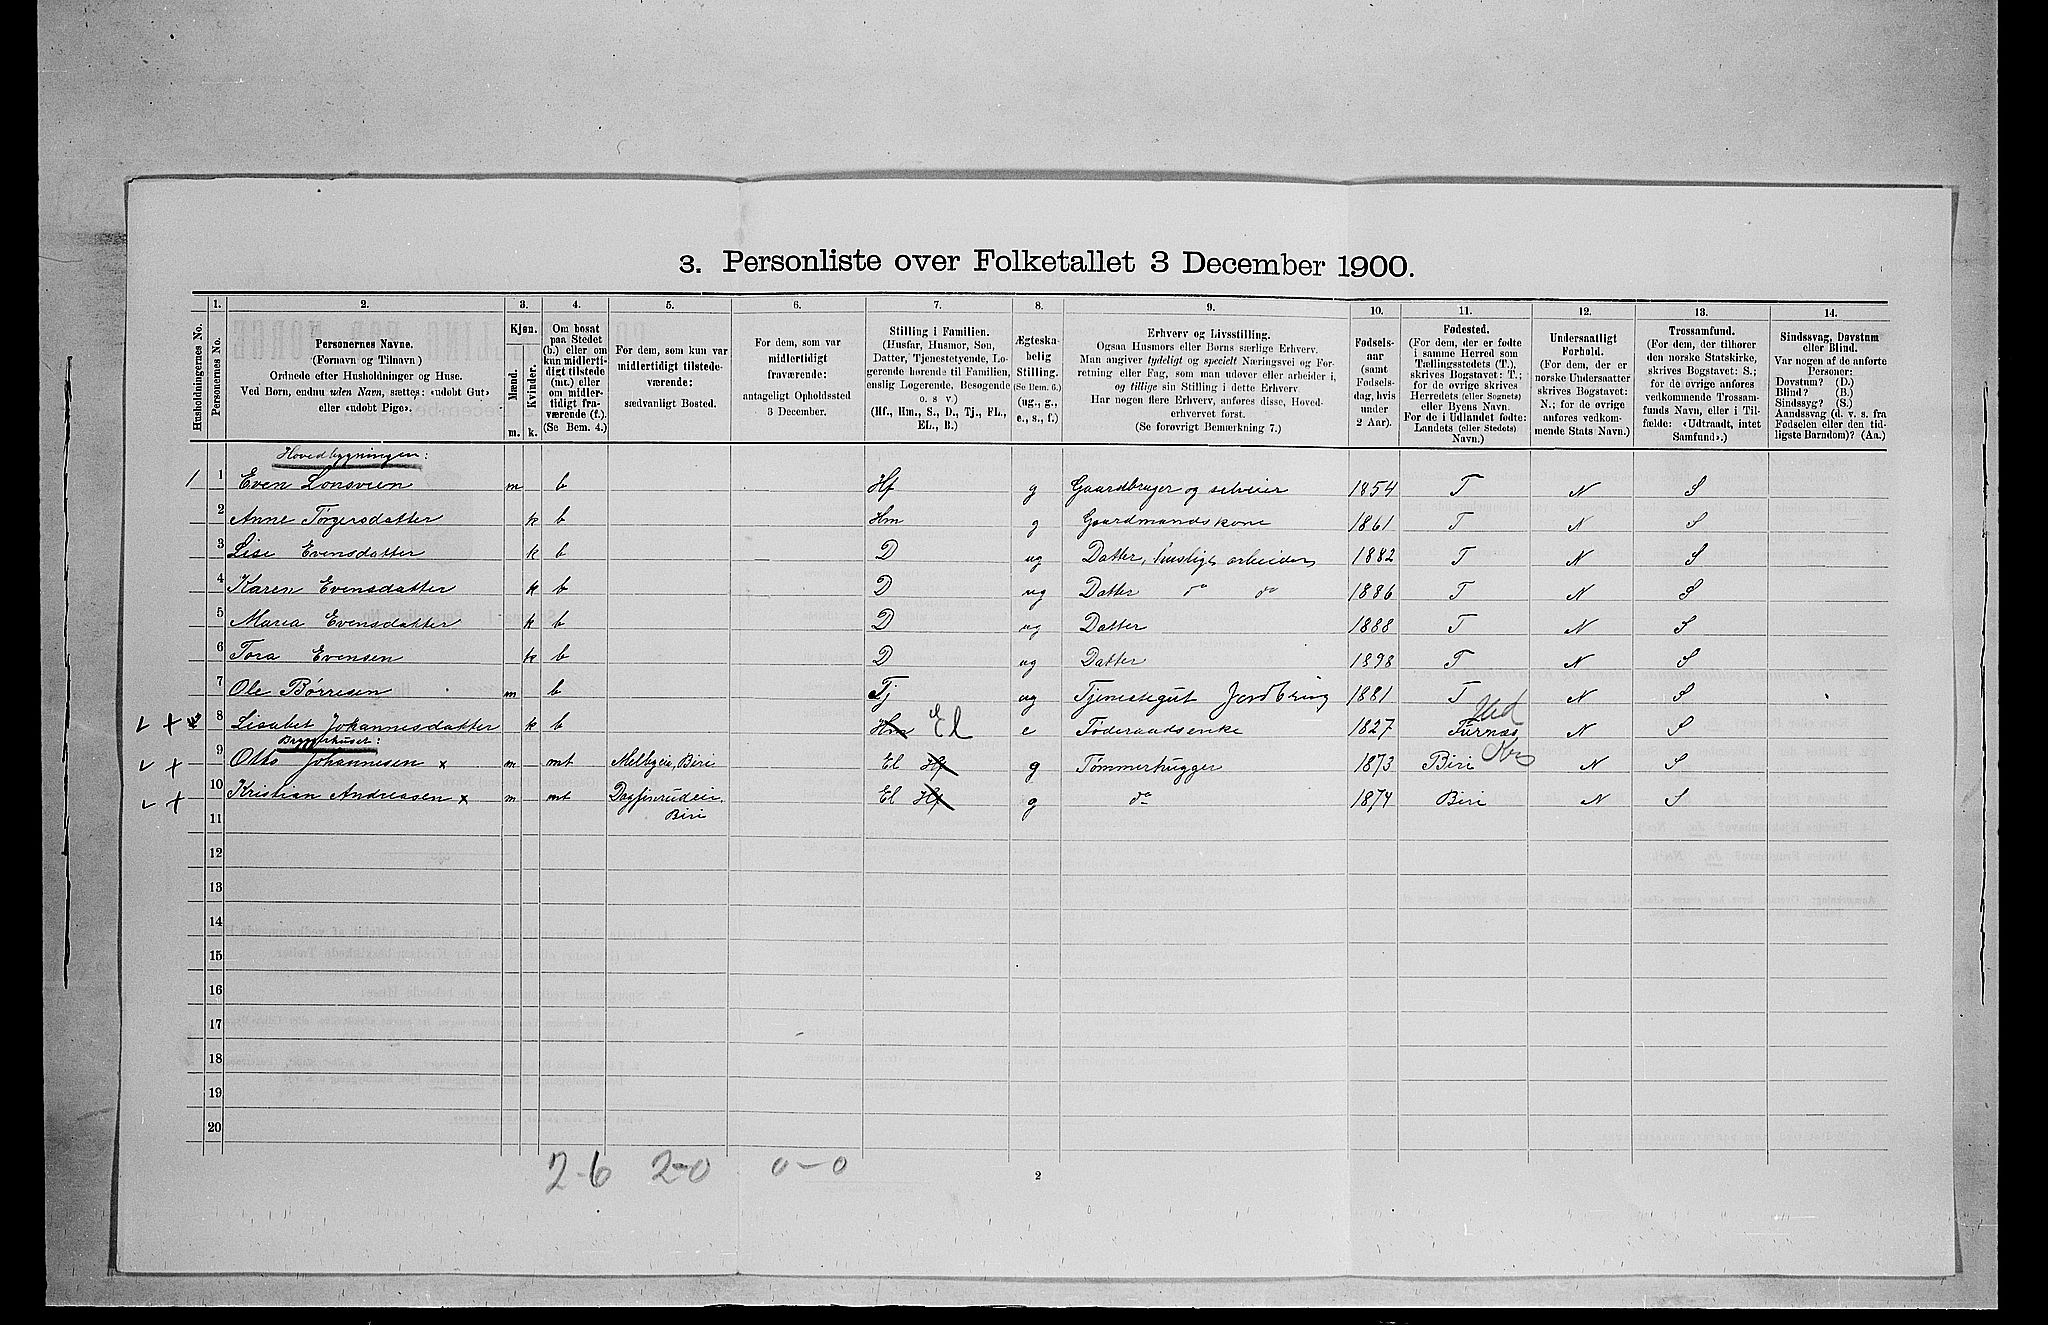 3. Personliste over Folketallet 3 December 1900.
1. 2. 3. 4. 5. 6. 7. 8. 9. 10. 11. 12. 13. 14.
Husholdningernes No.
Personernes No.
Personernes Navne.
(Fornavn og Tilnavn)
Ordnede efter Husholdninger og Huse.
Ved Børn, endnu uden Navn, sættes: «udøbt Gut»
eller «udøbt Pige».
Kjøn.
Mænd.
Kvinder.
m. k.
Om bosat
paa Stedet
(b.) eller om
kun midlerti-
digt tilstede
(mt.) eller
om midler-
tidigt fra-
værende (f.).
(Se Bem. 4.)
For dem, som kun var
midlertidigt tilstede-
værende:
sædvanligt Bosted.
For dem, som var
midlertidigt
fraværende:
antageligt Opholdssted
3 December.
Stilling i Familien.
(Husfar, Husmor, Søn,
Datter, Tjenestetyende, Lo-
gerende hørende til Familien,
enslig Logerende, Besøgende
o. s. v.)
(Hf., Hm., S., D., Tj., FL.,
EL., B.)
Ægteska-
belig
Stilling.
(Se Bem. 6.)
(ug., g.,
e., s., f.)
Erhverv og Livsstilling.
Ogsaa Husmors eller Børns særlige Erhverv.
Man angiver tydeligt og specielt Næringsvei og For-
retning eller Fag, som man udøver eller arbeider i,
og tillige sin Stilling i dette Erhverv.
Har nogen flere Erhverv, anføres disse, Hoved-
erhvervet først.
(Se forøvrigt Bemærkning 7.)
Fødsels-
aar
(samt
Fødsels-
dag, hvis
under
2 Aar).
Fødested.
(For dem, der er født
i samme Herred som
Tællingsstedets (T.),
skrives Bogstavet: T.;
for de øvrige skrives
Herredets (eller Sognets)
eller Byens Navn.
For de i Udlandet fødte:
Landets (eller Stedets)
Navn.)
Undersaatligt
Forhold.
(For dem, der er
norske Undersaatter
skrives Bogstavet:
N.; for de øvrige
anføres vedkom-
mende Stats Navn.)
Trossamfund.
(For dem, der tilhører
den norske Statskirke,
skrives Bogstavet: S.;
for de øvrige anføres
vedkommende Trossam-
funds Navn, eller i Til-
fælde: «Udtraadt, intet
Samfund».)
Sindssvag, Døvstum
eller Blind.
Var nogen af de anførte
Personer:
Døvstum? (D.)
Blind? (B.)
Sindssyg? (S.)
Aandssvag (d. v. s. fra
Fødselen eller den tid-
ligste Barndom)? (Aa.)
Hovedbygningen:
1 1 Even Lonsveen m b Hf g Gaardbruger og selveier 1854 T N S
2 Anne Torgersdatter k b Hm g Gaardmandskone 1861 T N S
3 Lise Evensdatter k b D ug Datter, huslige arbeider 1882 T N S
4 Karen Evensdatter k b D ug Datter do do 1886 T N S
5 Maria Evensdatter k b D ug Datter 1888 T N S
6 Tora Evensen k b D ug Datter 1898 T N S
7 Ole Børresen m b Tj ug Tjenestegut Jordbrug 1881 T N S
8 Lisabet Johannesdatter k b Hm El e Føderaadsenke 1827 Furnæs Hed N S
Bryggerhuset:
9 Otto Johannesen x m mt Melbyeie, Biri El Hf g Tømmerhugger 1873 Biri N S
10 Kristian Andreasen x m mt Dagfinrudeie, El Hf g do 1874 Biri N S
Biri
11
12
13
14
15
16
17
18
19
20
2-6 2-0 0-0
2